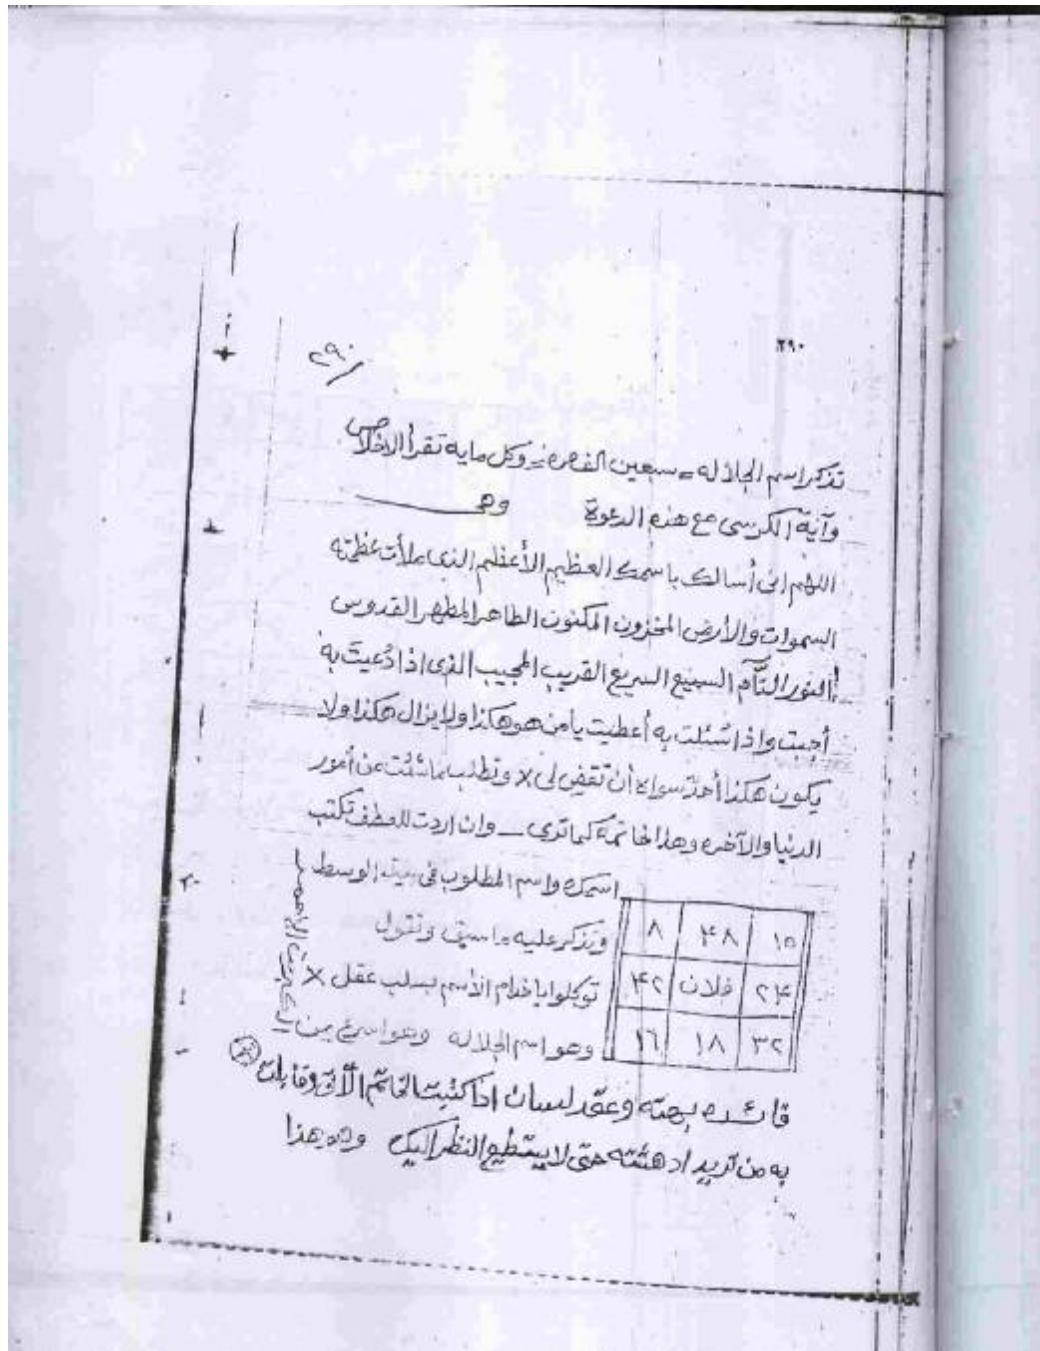 ٢٩٠
٢٩٠/
تذكر اسم الجلاله = سبعين الف مره = وكل مايه تقرأ الاخلاص
وآية الكرسى مع هذه الدعوة وهـ
اللهم انى أسالك باسمك العظيم الأعظم الذى ملأت عظمته
السموات والأرض المخزون المكنون الطاهر المطهر القدوس
النور التآم السميع السريع القريب المجيب الذى اذا دُعيت به
أجبت واذا سُئلت به أعطيت يا من هو هكذا ولا يزال هكذا ولا
يكون هكذا أحدٌ سواه أن تقضى لى x وتطلب ما شئت من أمور
الدنيا والآخره وهذا خاتمه كما ترى ــ وان اردت للعطف تكتب
اسمك واسم المطلوب فى بيت الوسط
١٥ ٤٨ ٨
وتذكر عليه ما سبق وتقول
٢٤ فلان ٤٢
توكلوا يا خدام الأسم بسلب عقل x
٣٢ ١٨ ١٦
وهو اسم الجلاله وهو اسرع من
الكبريت الاحمر
فائده بهته وعقد لسان اذا كتبت الخاتم الأتى وقابلت
به من تريد ادهشته حتى لا يستطيع النظر اليك وهو هذا